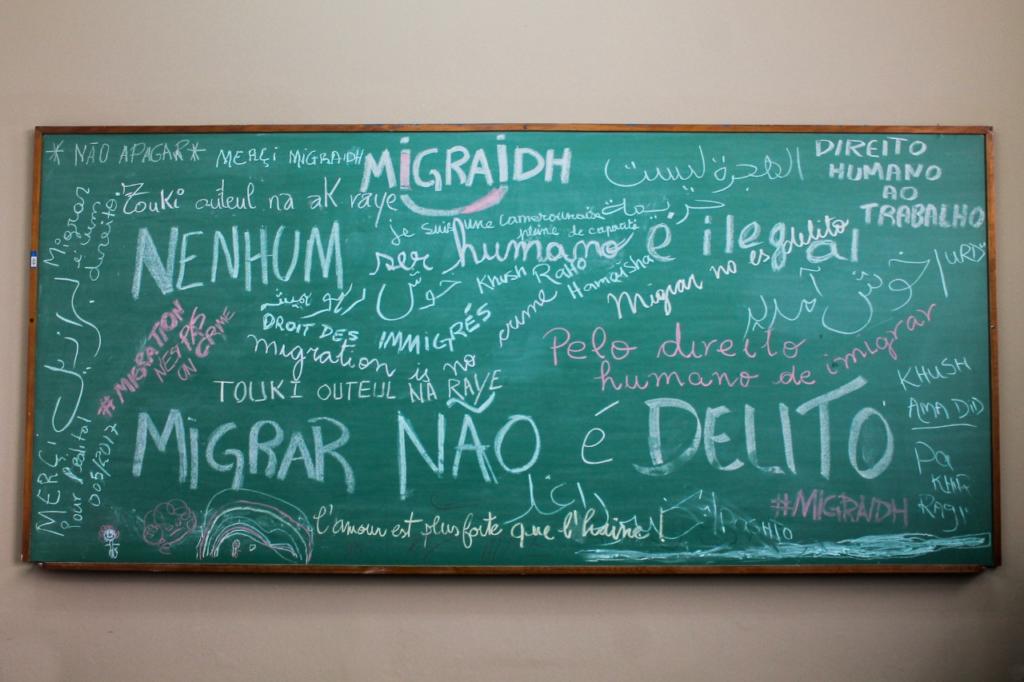 * NÃO APAGAR *
MERÇI MIGRAIDH
MIGRAIDH
الهجرة ليست
جريمة
DIREITO
HUMANO
AO
TRABALHO
Migrar
é um
direito
Touki outeul na ak raye
Je suis une camerounaise
pleine de capacité
NENHUM
ser humano é ilegal
Migrar no es delito
Khush Raho
Hamaisha
خوش
URDU
خوش آمدید
#MIGRATION
NES PAS
UN CRIME
DROIT DES IMMIGRÉS
migration is no crime
Pelo direito
humano de imigrar
TOUKI OUTEUL NA RAYE
KHUSH
AMADID
MIGRAR NÃO é DELITO
MERÇI
Pour
005/2017
PA
KHIR
RAGI
#MIGRAIDH
l'amour est plus forte que l'haine!